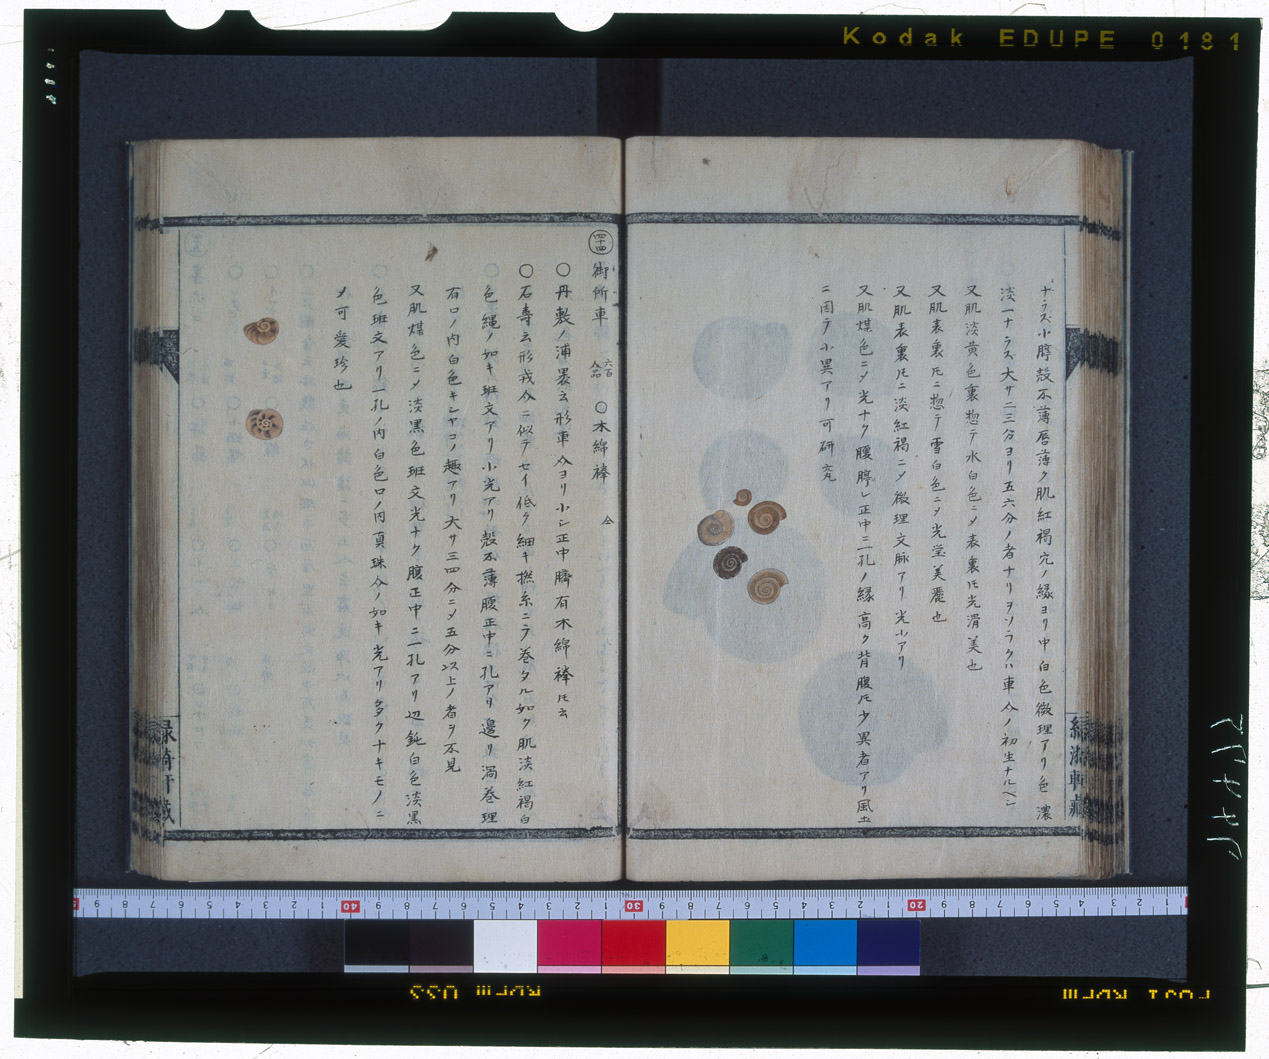 Kodak EDUPE 0181
ナラス小臍殻不薄唇薄ク肌紅褐穴ノ縁ヨリ中白色微理アリ色濃
淡一ナラス大サ二三分ヨリ五六分ノ者ナリヲソラクハ車介ノ初生ナルヘシ
又肌淡黄色裏惣テ水白色ニメ表裏圧光滑美也
又肌表裏圧ニ惣テ雪白色ニメ光瑩美麗也
又肌表裏圧ニ淡紅褐ニメ微理文脉アリ光少アリ
又肌煤色ニメ光ナク腰臍シ正中ニ孔ノ縁高ク背腹圧少異者アリ風土
ニ因テ小異アリ可研究
緑漪軒蔵
四十四 御所車 六百介品 〇木綿襷 仝
〇丹敷ノ浦畧云形車介ヨリ小シ正中臍有木綿襷圧云
〇石壽云形戎介ニ似テセイ低ク細キ撚糸ニテ巻タル如ク肌淡紅褐白
色縄ノ如キ班文アリ小光アリ殻不薄腹正中ニ孔アリ邉リ渦巻理
有口ノ内白色キシヤコノ趣アリ大サ三四分ニメ五分以上ノ者ヲ不見
又肌煤色ニメ淡黒色班文光ナク腹正中ニ一孔アリ辺純白色淡黒
色班文アリ一孔ノ内白色口ノ内真珠介ノ如キ光アリ多クナキモノニ
メ可愛珍也
緑漪軒蔵